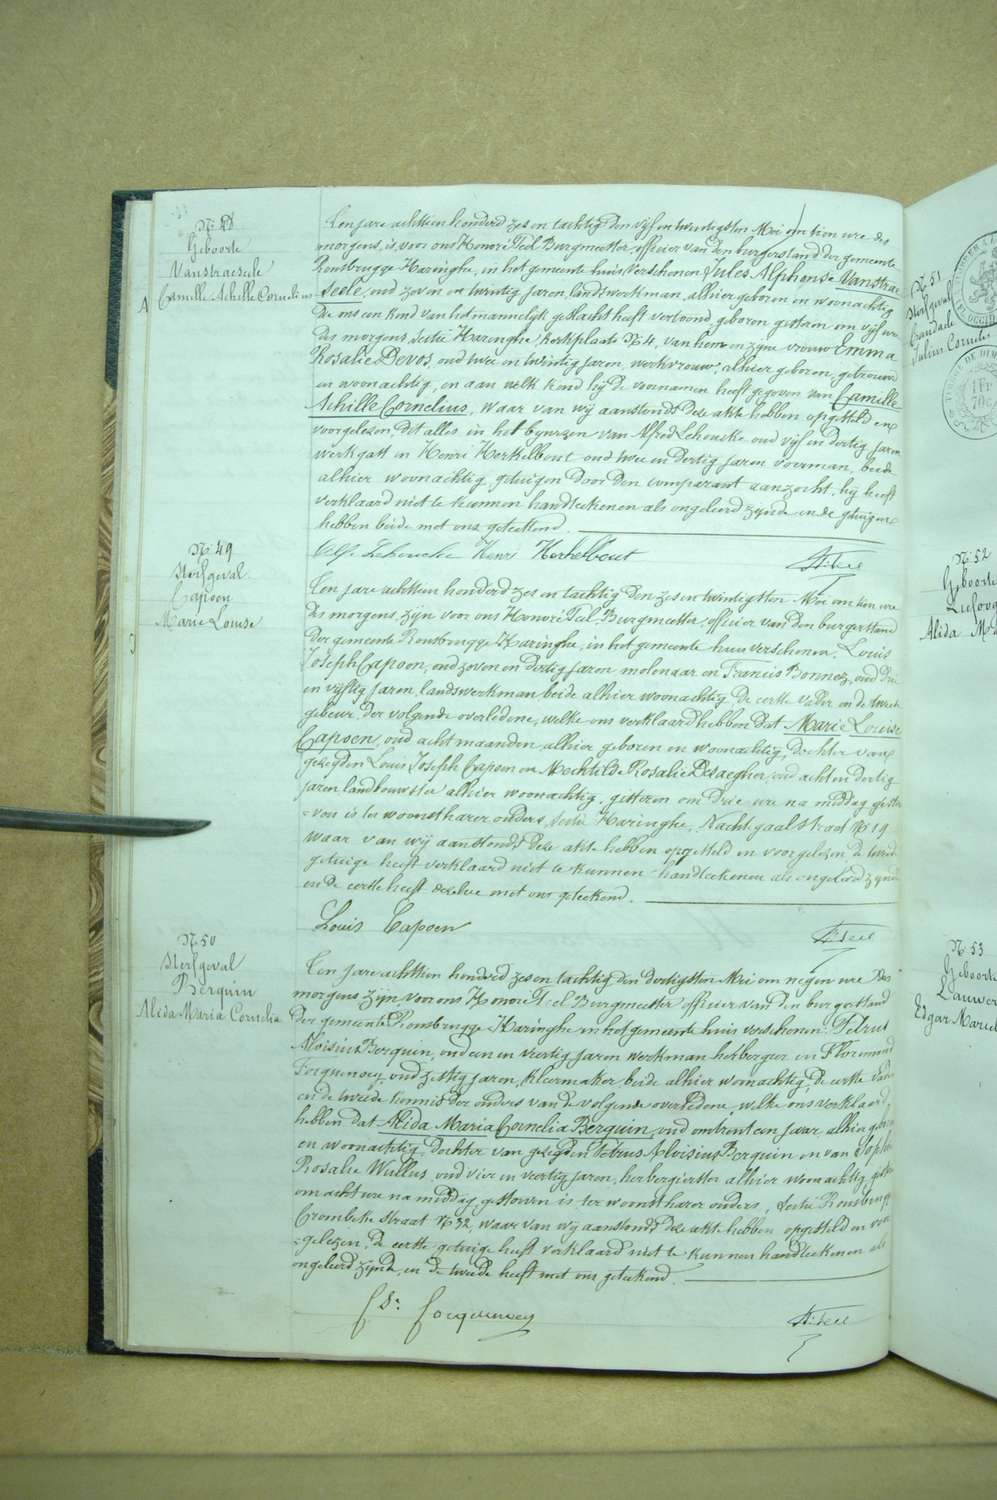 N. 48
Geboorte
Vanstraeseele
Camille Achille Cornelius
A
Een jare achttien honderd zes en tachtig den vijf en twintigsten Mei om tien ure des
morgens, is voor ons Honoré Teel Burgmeester, officier van den burgerstand der gemeente
Rousbrugge Haringhe, in het gemeente huis verschenen Jules Alphonse Vanstrae
seele, oud zeven en twintig jaren, landswerkman, alhier geboren en woonachtig
Die ons een kind van het mannelijk geslacht heeft vertoond, geboren gisteren om vijf ure
des morgens, sectie Haringhe, kerkplaats N. 4, van hem en zijne vrouw Emma
Rosalie Devos, oud twee en twintig jaren, werkvrouw, alhier geboren, getrouwd
en woonachtig, en aan welk kind hij de voornamen heeft gegeven van Camille
Achille Cornelius, waar van wij aanstonds deze akte hebben opgesteld en
voorgelezen, dit alles in het bijwezen van Alfred Lehoucke oud vijf en dertig jaren
werkgast en Henri Herkelbout oud twee en dertig jaren voerman, beide
alhier woonachtig, getuigen door den comparant aanzocht, hij heeft
verklaard niet te kunnen handteekenen als ongeleerd zijnde en de getuigen
hebben beide met ons geteekend.
Alf. Lehoucke Henri Herkelbout H. Teel
N. 49
Sterfgeval
Capoen
Marie Louise
Een jare achttien honderd zes en tachtig den zes en twintigsten Mei om tien ure
des morgens, zijn voor ons Honoré Teel, Burgmeester, officier van den burgerstand
der gemeente Rousbrugge Haringhe, in het gemeente huis verschenen. Louis
Joseph Capoen, oud zeven en dertig jaren molenaar en Francis Bonnez, oud drie
en vijftig jaren, landswerkman beide alhier woonachtig, de eerste vader en de tweede
gebuur der volgende overledene, welke ons verklaard hebben dat Marie Louise
Capoen, oud acht maanden, alhier geboren en woonachtig, dochter van
gezegden Louis Joseph Capoen en Mechtilde Rosalie Desaegher, oud acht en dertig
jaren landbouwster alhier woonachtig, gisteren om drie ure na middag gestor
=ven is ter woonst harer ouders, sectie Haringhe, Nachtegaal straat N. 19
waar van wij aanstonds deze akte hebben opgesteld en voorgelezen, de tweede
getuige heeft verklaard niet te kunnen handteekenen als ongeleerd zijnde
en de eerste heeft dezelve met ons geteekend.
Louis Capoen H. Teel
N. 50
Sterfgeval
Berquin
Alida Maria Cornelia
Een jare achttien honderd zes en tachtig den dertigsten Mei om negen ure des
morgens zijn voor ons Honoré Teel Burgmeester officier van den burgerstand
der gemeente Rousbrugge Haringhe in het gemeente huis verschenen. Petrus
Aloisius Berquin, oud een en veertig jaren werkman herbergier en Florimond
Focquenoey, oud zestig jaren, kleermaker, beide alhier woonachtig, de eerste vader
en de tweede kennis der ouders van de volgende overledene, welke ons verklaard
hebben dat Alida Maria Cornelia Berquin, oud omtrent een jaar, alhier geboren
en woonachtig, dochter van gezegden Petrus Aloisius Berquin en van Sophie
Rosalie Wullus, oud vier en veertig jaren, herbergierster alhier woonachtig, gisteren
om acht ure na middag gestorven is, ter woonst harer ouders, sectie Rousbrugge
Crombeke straat N. 32, waar van wij aanstonds deze akte hebben opgesteld en voor
=gelezen, de eerste getuige heeft verklaard niet te kunnen handteekenen als
ongeleerd zijnde, en de tweede heeft met ons geteekend.
Focquenoey H. Teel
N. 51
Sterfgeval
N. 52
Geboorte
Alida M
N. 53
Geboorte
Lauwer
Edgar Marie